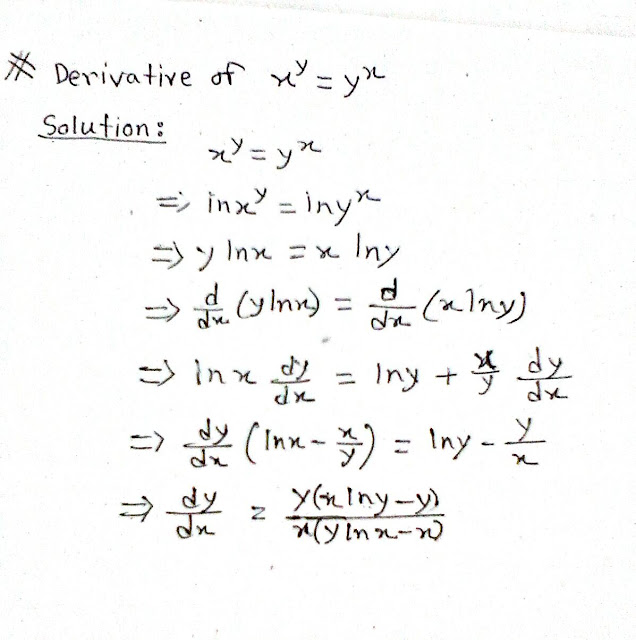 * Derivative of x^y = y^x
Solution:
x^y = y^x
=> inx^y = lny^x
=> y lnx = x lny
=> d/dx (ylnx) = d/dx (xlny)
=> lnx dy/dx = lny + x/y dy/dx
=> dy/dx (lnx - x/y) = lny - y/x
=> dy/dx = y(xlny-y)/x(ylnx-x)